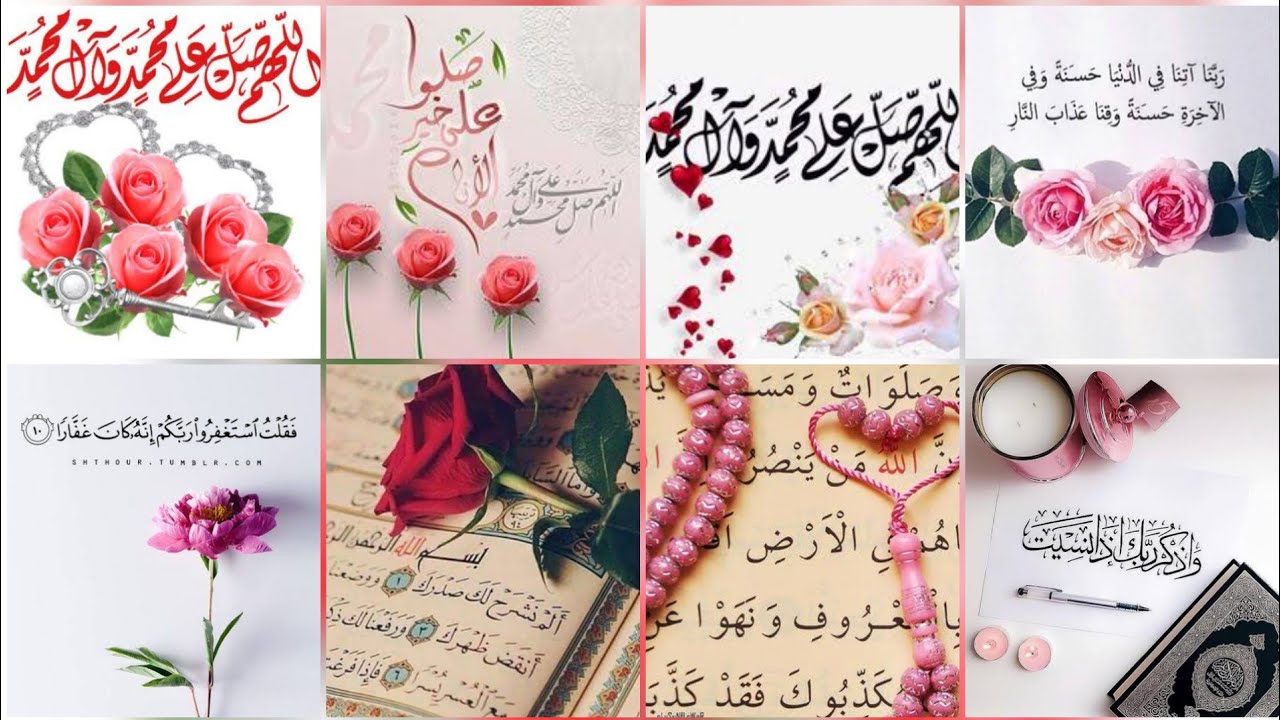 اللّٰهم صَلِّ عَلى مُحمَّدٍ وَآلِ مُحمَّدٍ
صلوا
على خير
الأنام
اللهم صل على محمد وآل محمد
اللّٰهم صَلِّ عَلى مُحمَّدٍ وَآلِ مُحمَّدٍ
رَبَّنَا آتِنَا فِي الدُّنْيَا حَسَنَةً وَفِي
الآخِرَةِ حَسَنَةً وَقِنَا عَذَابَ النَّارِ
فَقُلْتُ ٱسْتَغْفِرُوا۟ رَبَّكُمْ إِنَّهُۥ كَانَ غَفَّارًا ١٠
SHTHOUR.TUMBLR.COM
بسم الله الرحمن الرحيم
أَلَمْ نَشْرَحْ لَكَ صَدْرَكَ ١ وَوَضَعْنَا
أَنقَضَ ظَهْرَكَ ٣ وَرَفَعْنَا لَكَ ذِكْ
مَعَ الْعُسْرِ يُسْرًا ٦ فَإِذَا فَرَغْتَ
وَصَلَوَاتٌ وَمَسَ
اللَّهُ مَنْ يَنْصُرُ
الْأَرْضِ
بِالْمَعْرُوفِ وَنَهَوْا عَنِ
يُكَذِّبُوكَ فَقَدْ كَذَّبَ
وَاذْكُر رَّبَّكَ إِذَا نَسِيتَ